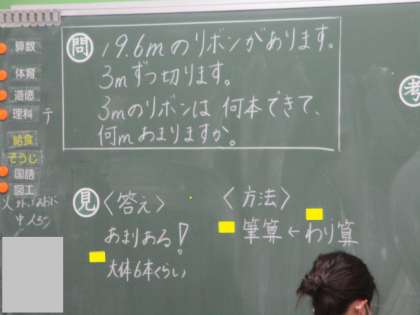 問 19.6mのリボンがあります。
3mずつ切ります。
3mのリボンは 何本できて、
何mあまりますか。
算数
体育
道徳
理科 テ
給食
そうじ
国語
図工
見 〈答え〉
あまりある!
大体6本くらい
〈方法〉
筆算←わり算
考